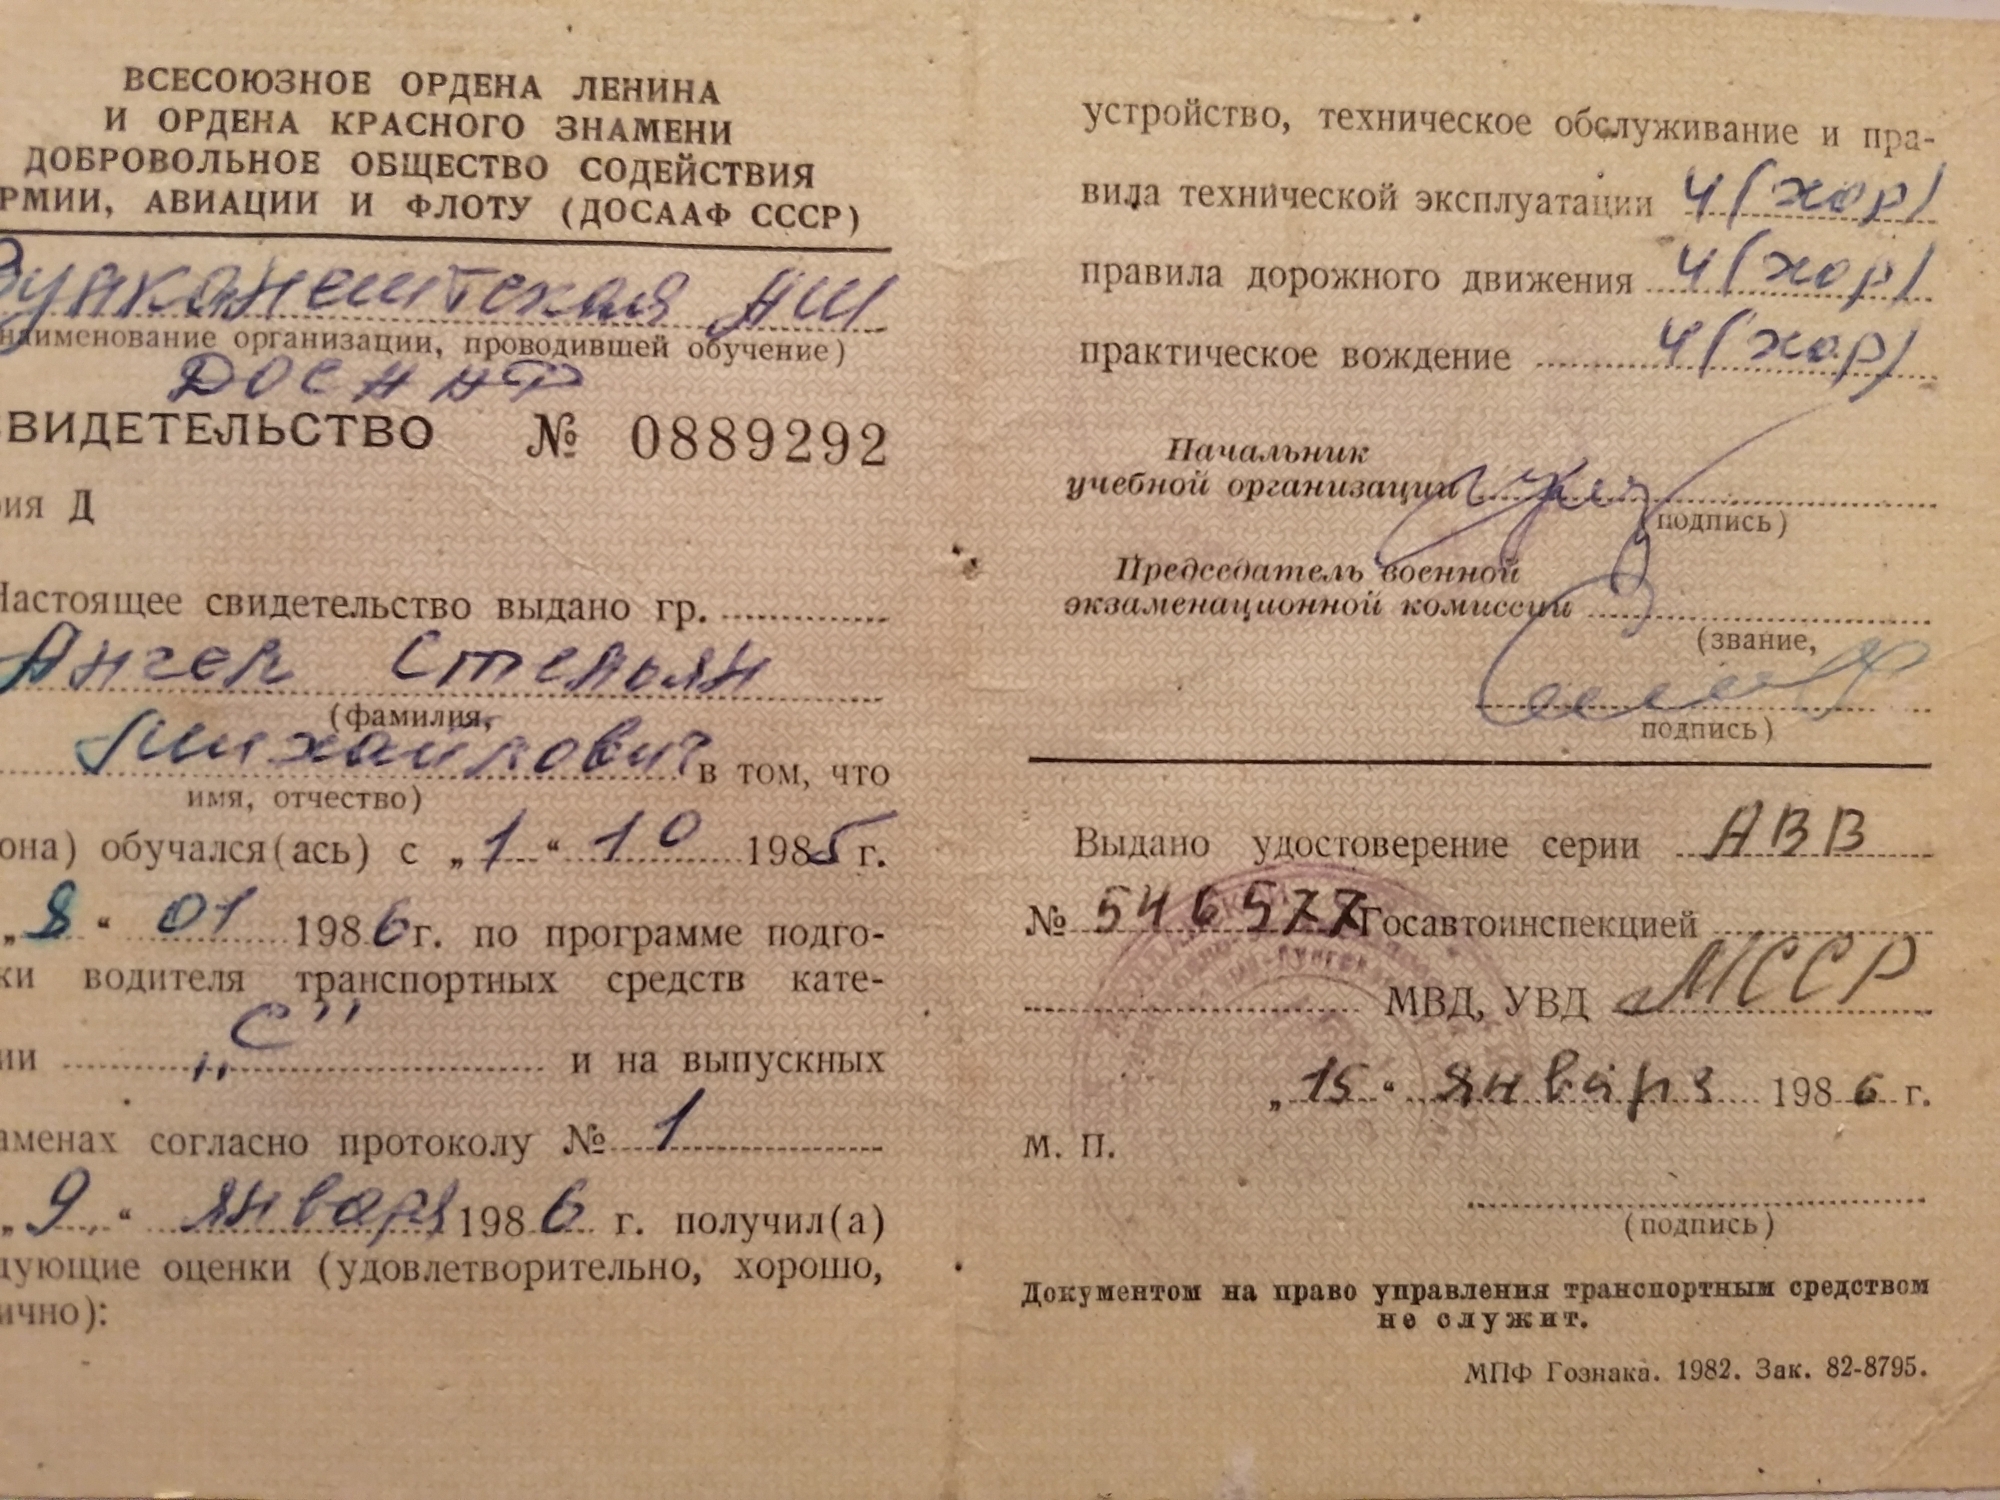 ВСЕСОЮЗНОЕ ОРДЕНА ЛЕНИНА
И ОРДЕНА КРАСНОГО ЗНАМЕНИ
ДОБРОВОЛЬНОЕ ОБЩЕСТВО СОДЕЙСТВИЯ
РМИИ, АВИАЦИИ И ФЛОТУ (ДОСААФ СССР)
Вулканештская АШ
наименование организации, проводившей обучение)
ДОСААФ
ВИДЕТЕЛЬСТВО № 0889292
рия Д
Настоящее свидетельство выдано гр.
Ангел Степан
(фамилия,
Михайлович в том, что
имя, отчество)
она) обучался(ась) с „1“ 10 1985 г.
„8“ 01 1986 г. по программе подго-
ки водителя транспортных средств кате-
ии „С" и на выпускных
аменах согласно протоколу № 1
„9“ января 1986 г. получил(а)
дующие оценки (удовлетворительно, хорошо,
ично):
устройство, техническое обслуживание и пра-
вила технической эксплуатации 4 (хор)
правила дорожного движения 4 (хор)
практическое вождение 4 (хор)
Начальник
учебной организации
(подпись)
Председатель военной
экзаменационной комиссии
(звание,
подпись)
Выдано удостоверение серии АВВ
№ 546577 Госавтоинспекцией
МВД, УВД МССР
„15“ января 1986 г.
М. П.
(подпись)
Документом на право управления транспортным средством
не служит.
МПФ Гознака. 1982. Зак. 82-8795.